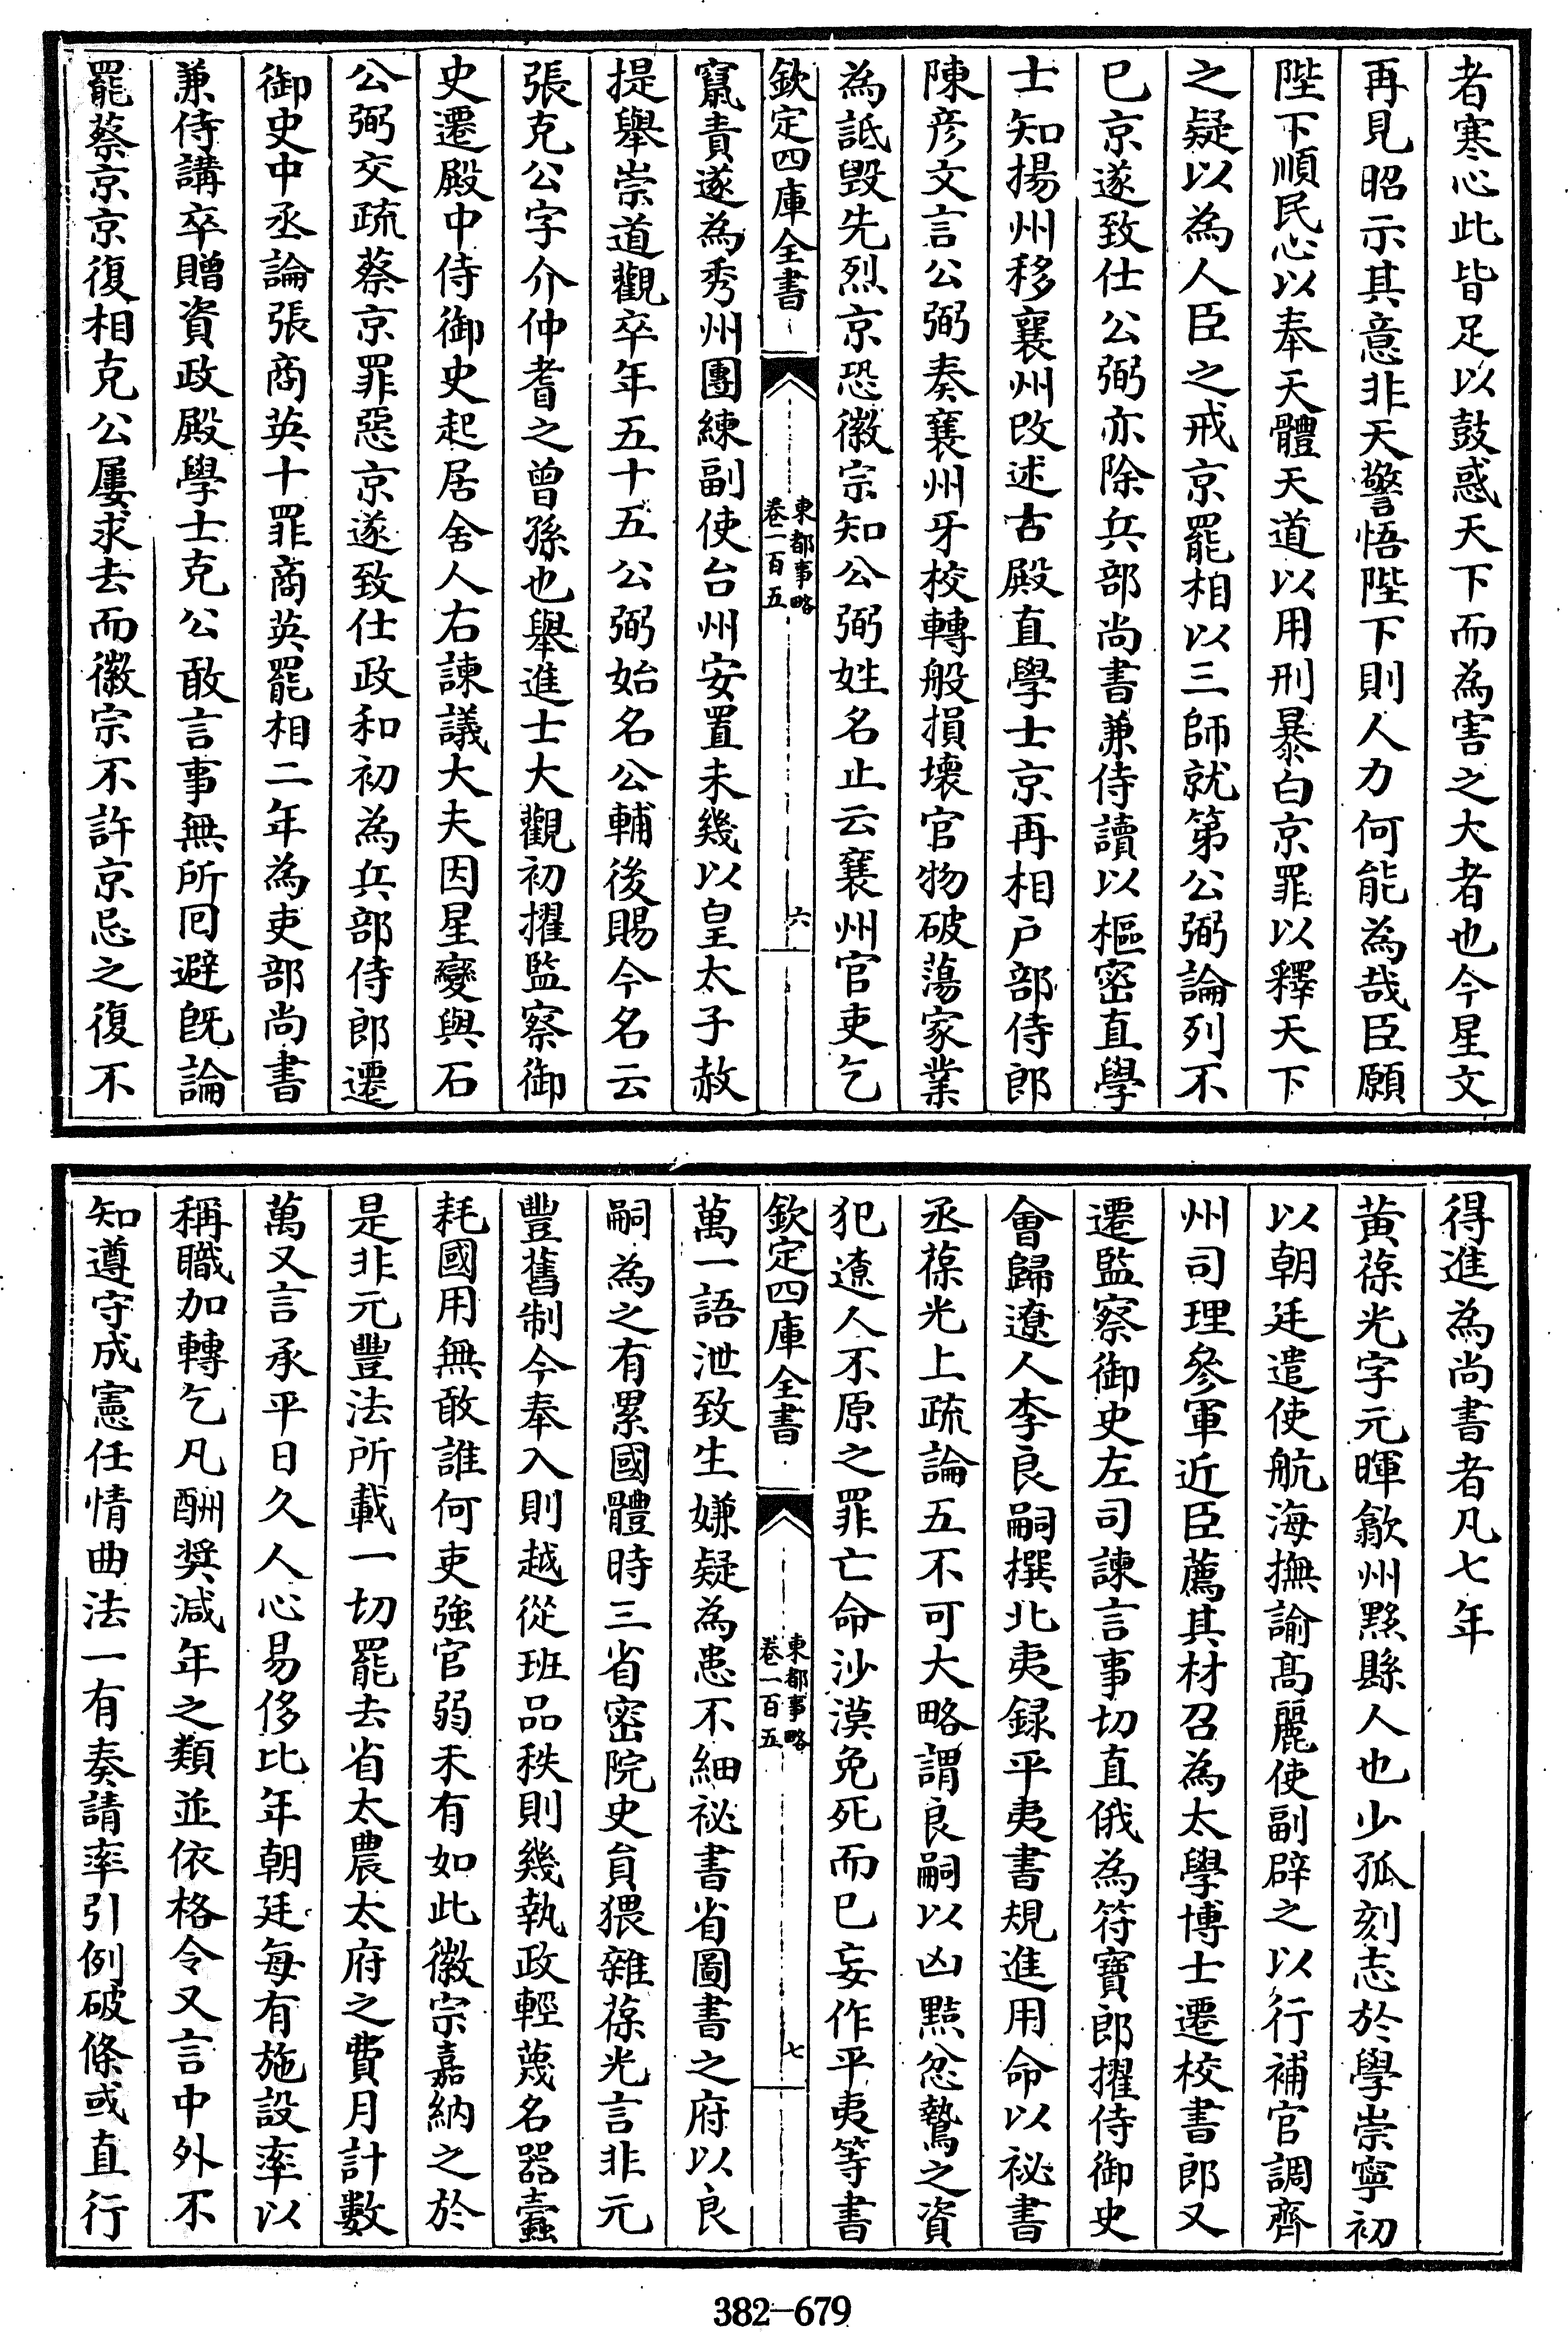 者寒心此皆足以鼓惑天下而為害之大者也今星文
再見昭示其意非天警悟陛下則人力何能為哉臣願
陛下順民心以奉天體天道以用刑暴白京罪以釋天下
之疑以為人臣之戒京罷相以三師就第公弼論列不
已京遂致仕公弼亦除兵部尚書兼侍讀以樞密直學
士知揚州移襄州改述古殿直學士京再相户部侍郎
陳彦文言公弼奏襄州牙校轉般損壊官物破蕩家業
為詆毁先烈京恐徽宗知公弼姓名止云襄州官吏乞
欽定四庫全書
東都事略
卷一百五
六
竄責遂為秀州團練副使台州安置未幾以皇太子赦
提舉崇道觀卒年五十五公弼始名公輔後賜今名云
張克公字介仲耆之曾孫也舉進士大觀初擢監察御
史遷殿中侍御史起居舍人右諫議大夫因星變與石
公弼交疏蔡京罪惡京遂致仕政和初為兵部侍郎遷
御史中丞論張商英十罪商英罷相二年為吏部尚書
兼侍講卒贈資政殿學士克公敢言事無所囘避旣論
罷蔡京京復相克公屢求去而徽宗不許京忌之復不
得進為尚書者凡七年
黄葆光字元暉歙州黟縣人也少孤刻志於學崇寧初
以朝廷遣使航海撫諭髙麗使副辟之以行補官調齊
州司理參軍近臣薦其材召為太學博士遷校書郎又
遷監察御史左司諫言事切直俄為符寶郎擢侍御史
會歸遼人李良嗣撰北夷録平夷書規進用命以祕書
丞葆光上疏論五不可大略謂良嗣以凶黠忿鷙之資
犯遼人不原之罪亡命沙漠免死而已妄作平夷等書
欽定四庫全書
東都事略
卷一百五
七
萬一語泄致生嫌疑為患不細祕書省圖書之府以良
嗣為之有累國體時三省密院史員猥雜葆光言非元
豐舊制今奉入則越從班品秩則幾執政輕蔑名器蠹
耗國用無敢誰何吏強官弱未有如此徽宗嘉納之於
是非元豐法所載一切罷去省太農太府之費月計數
萬又言承平日久人心易侈比年朝廷每有施設率以
稱職加轉乞凡酬奨減年之類並依格令又言中外不
知遵守成憲任情曲法一有奏請率引例破條或直行
382-679